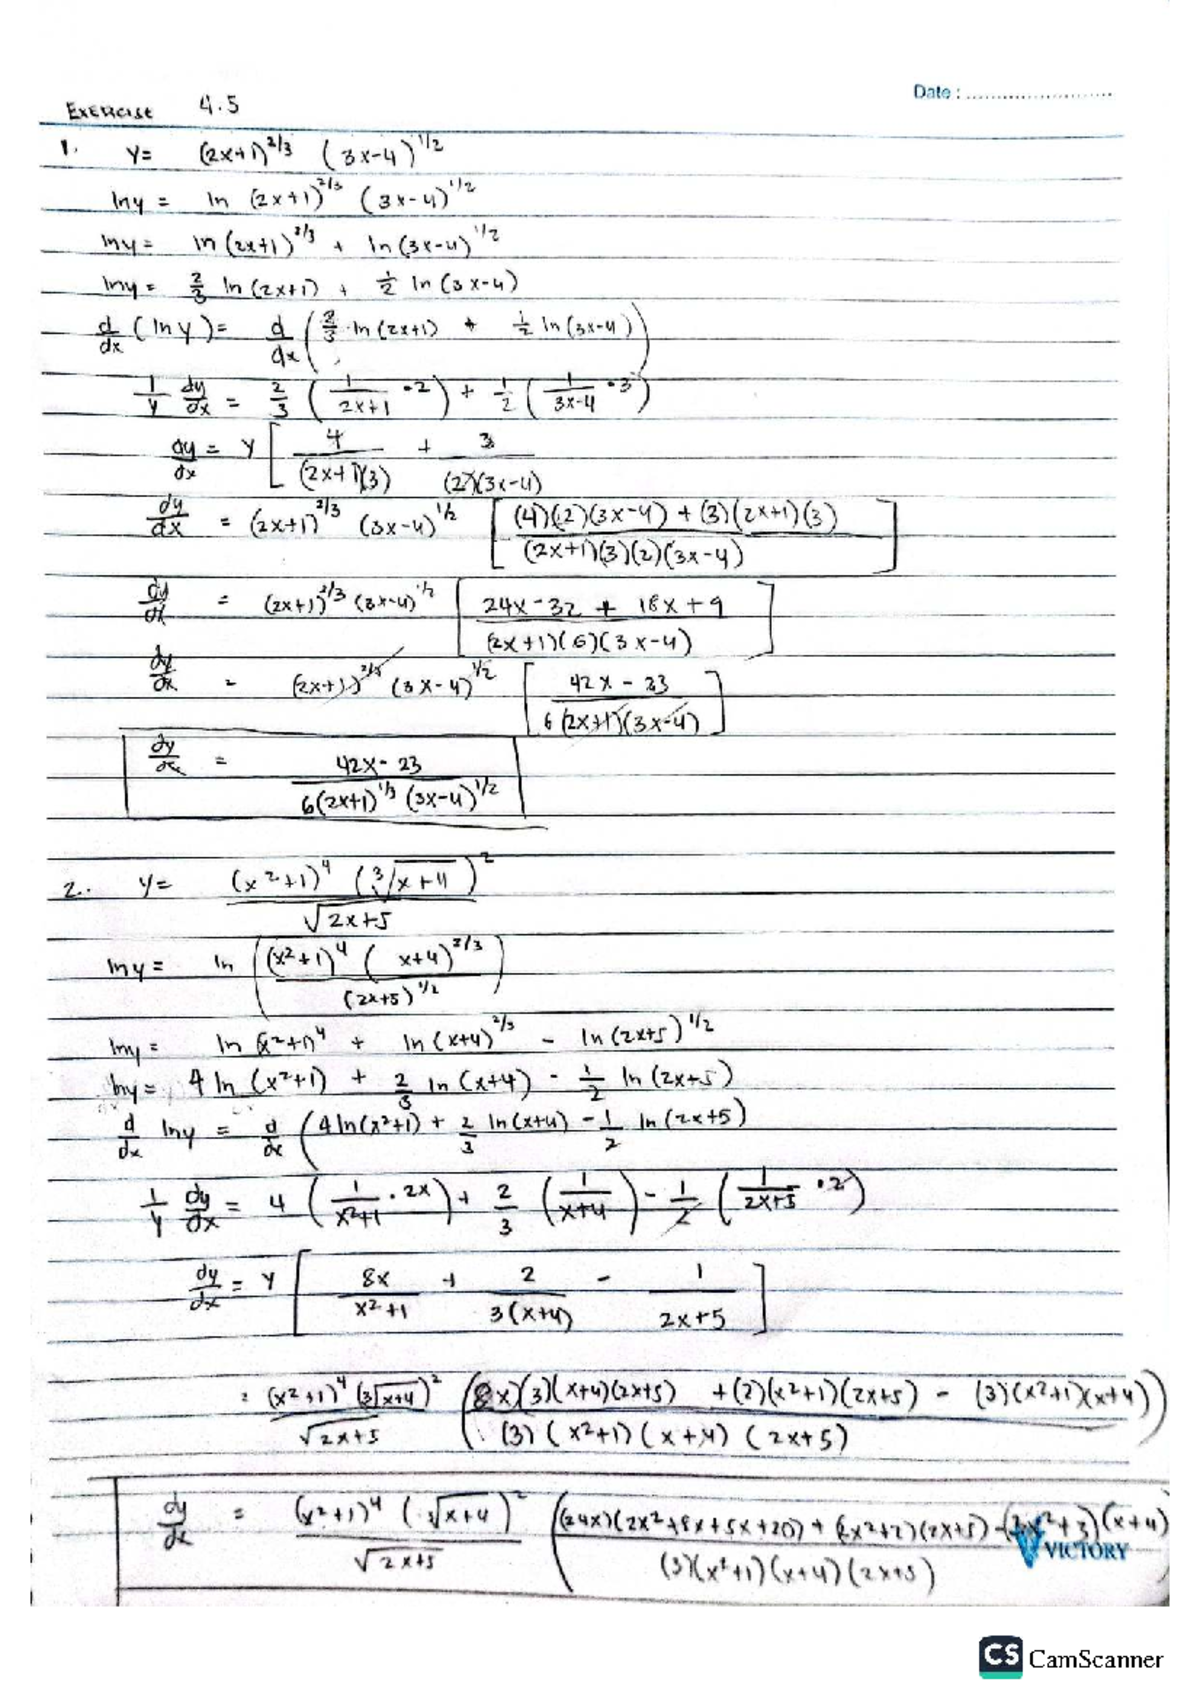 Date : ........................
EXERCISE 4.5
1. y = (2x+1)^2/3 (3x-4)^1/2
ln y = ln (2x+1)^2/3 (3x-4)^1/2
ln y = ln (2x+1)^2/3 + ln (3x-4)^1/2
ln y = 2/3 ln (2x+1) + 1/2 ln (3x-4)
d/dx (ln y) = d/dx (2/3 · ln (2x+1) + 1/2 ln (3x-4))
1/y dy/dx = 2/3 (1/(2x+1) · 2) + 1/2 (1/(3x-4) · 3)
dy/dx = y [4/((2x+1)(3)) + 3/((2)(3x-4))
dy/dx = (2x+1)^2/3 (3x-4)^1/2 [((4)(2)(3x-4) + (3)(2x+1)(3))/((2x+1)(3)(2)(3x-4))]
dy/dx = (2x+1)^2/3 (3x-4)^1/2 [(24x-32 + 18x+9)/((2x+1)(6)(3x-4))]
dy/dx = (2x+1)^2/3 (3x-4)^1/2 [(42x-23)/(6(2x+1)(3x-4))]
dy/dx = (42x-23)/(6(2x+1)^1/3 (3x-4)^1/2)
2.. y = ((x²+1)^4 (∛(x+4))²)/√(2x+5)
ln y = ln (((x²+1)^4 (x+4)^2/3)/((2x+5)^1/2))
ln y = ln (x²+1)^4 + ln (x+4)^2/3 - ln (2x+5)^1/2
ln y = 4 ln (x²+1) + 2/3 ln (x+4) - 1/2 ln (2x+5)
d/dx ln y = d/dx (4 ln (x²+1) + 2/3 ln (x+4) - 1/2 ln (2x+5)
1/y dy/dx = 4 (1/(x²+1) · 2x) + 2/3 (1/(x+4)) - 1/2 (1/(2x+5) · 2)
dy/dx = y [8x/(x²+1) + 2/(3(x+4)) - 1/(2x+5)]
= ((x²+1)^4 (∛(x+4))²)/√(2x+5) ((8x)(3)(x+4)(2x+5) + (2)(x²+1)(2x+5) - (3)(x²+1)(x+4))/((3)(x²+1)(x+4)(2x+5))
dy/dx = ((x²+1)^4 (∛(x+4))²)/√(2x+5) ((24x)(2x²+8x+5x+20) + (2x²+2)(2x+5) - (3x²+3)(x+4))/((3)(x²+1)(x+4)(2x+5))
VICTORY
CS CamScanner